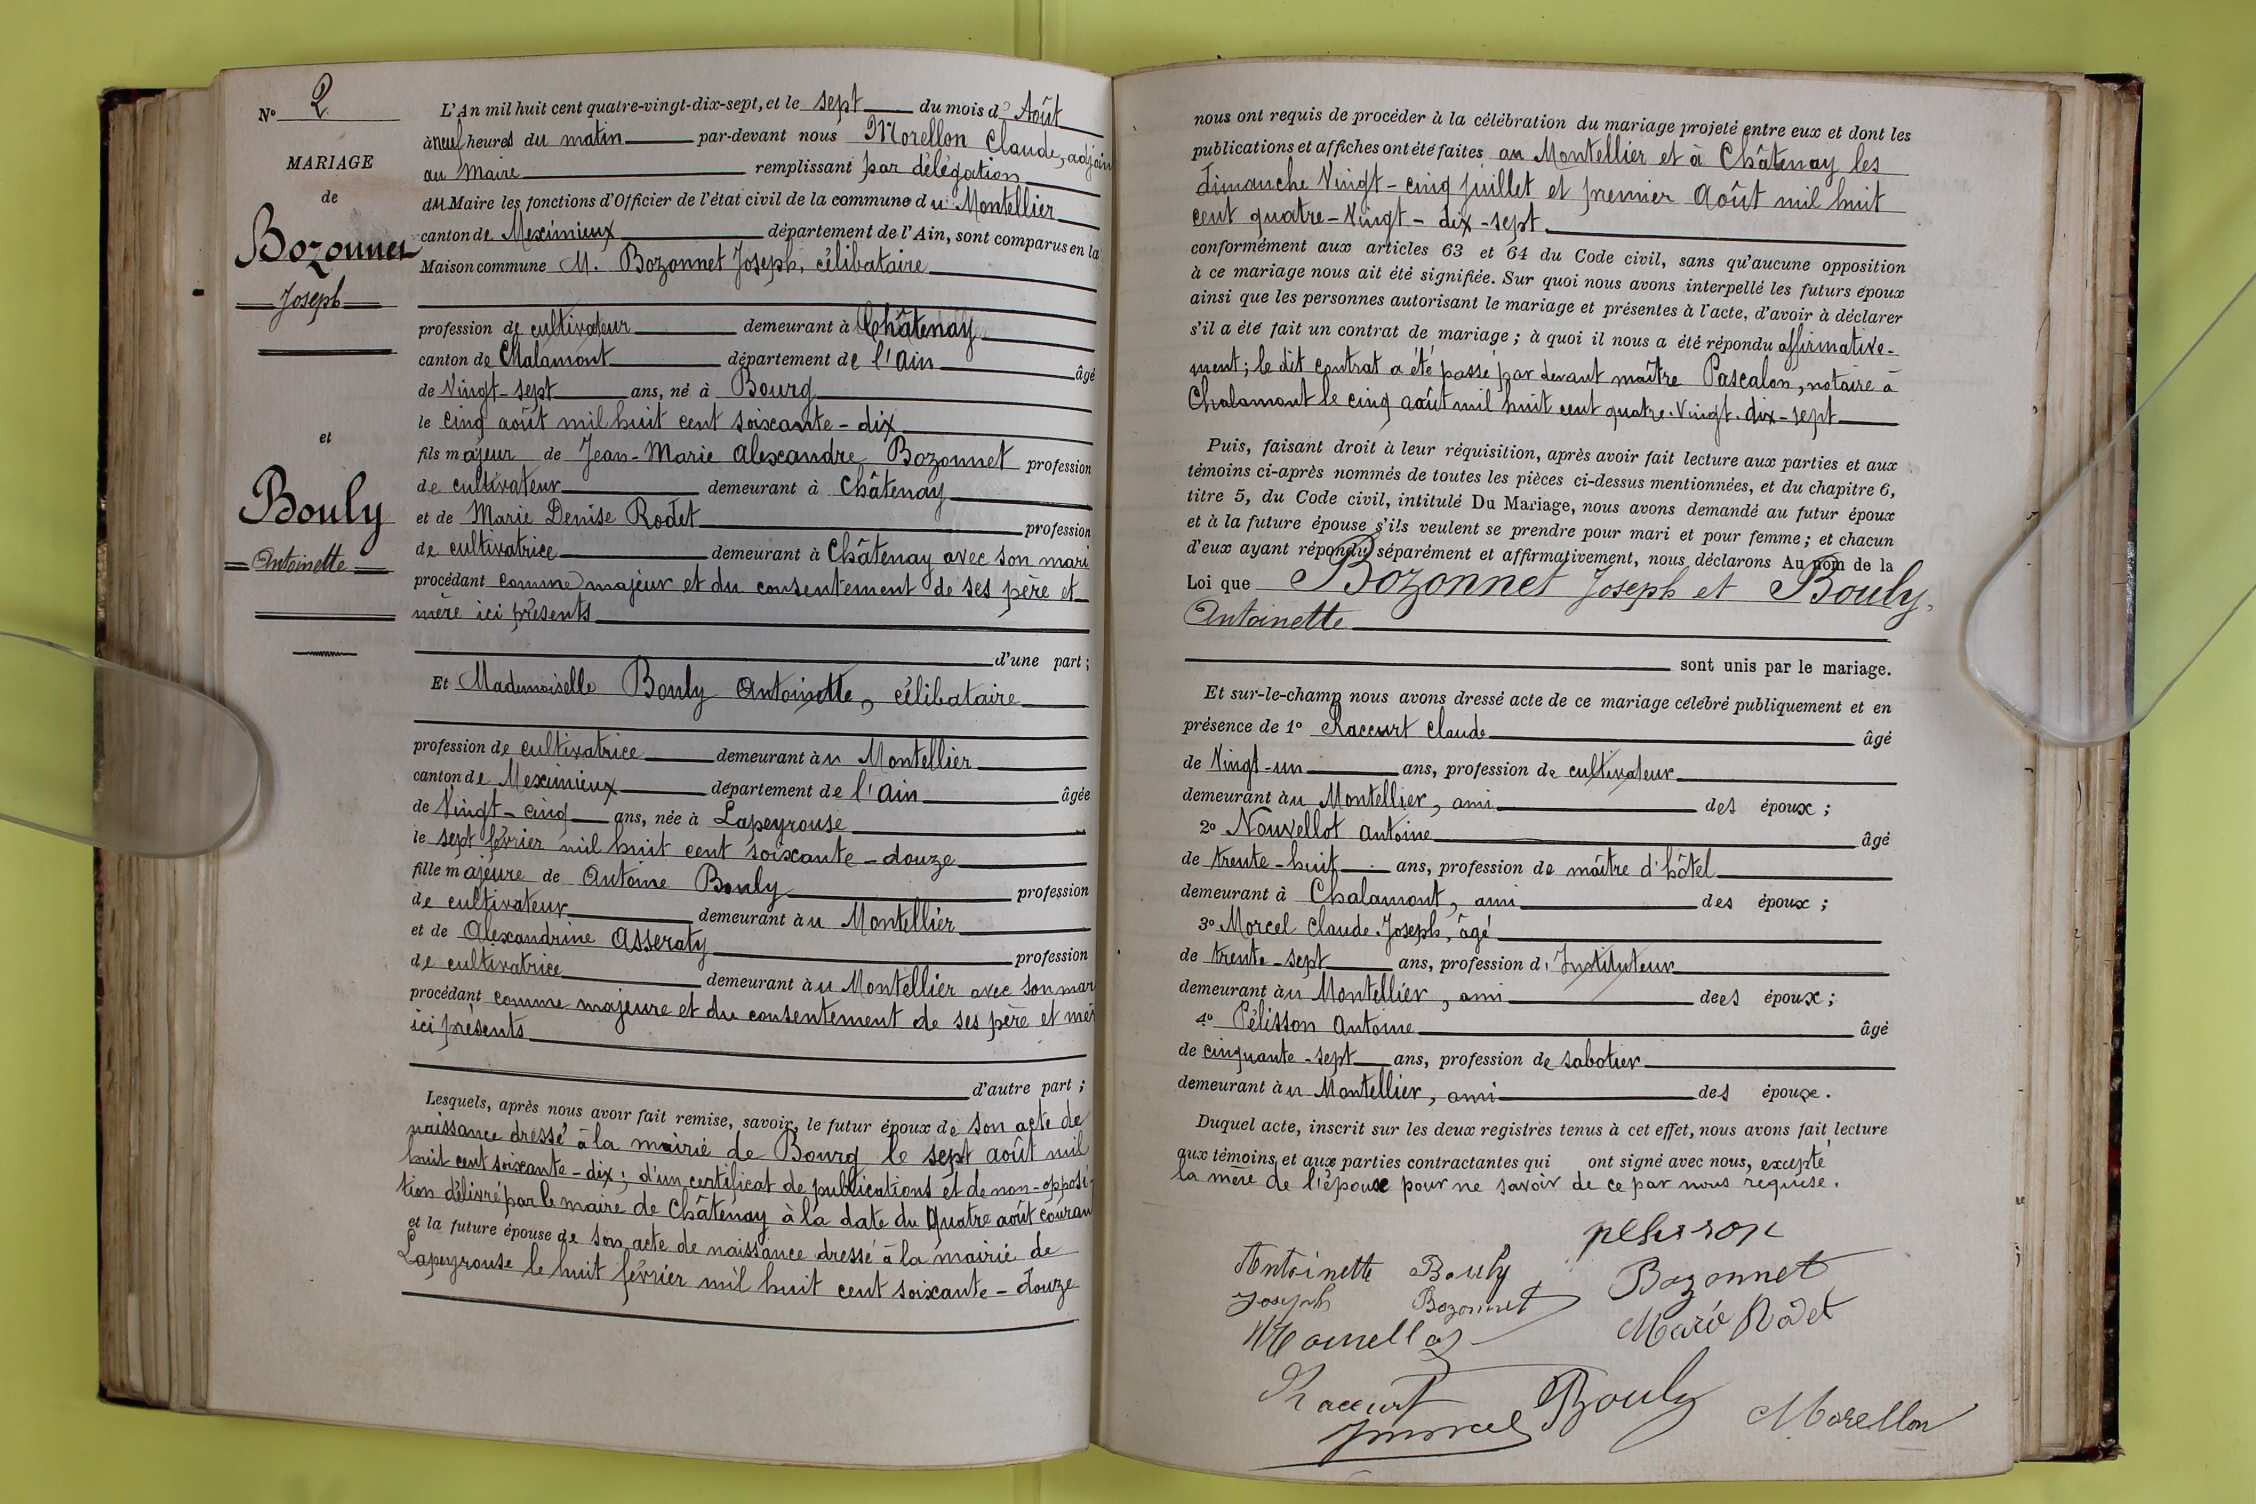 N° 2
MARIAGE
de
Bozonnet
Joseph
et
Bouly
Antoinette
L'An mil huit cent quatre-vingt-dix-sept, et le sept du mois d' Août
à neuf heures du matin par-devant nous Morellon Claude, adjoin
au Maire remplissant par délégation
du Maire les fonctions d'Officier de l'état civil de la commune du Montellier
canton de Meximieux département de l'Ain, sont comparus en la
Maison commune M. Bozonnet Joseph, célibataire
profession de cultivateur demeurant à Châtenay
canton de Chalamont département de l'Ain âgé
de Vingt-sept ans, né à Bourg
le cinq août mil huit cent soixante-dix
fils majeur de Jean-Marie Alexandre Bozonnet profession
de cultivateur demeurant à Châtenay
et de Marie Denise Rodet profession
de cultivatrice demeurant à Châtenay avec son mari
procédant comme majeur et du consentement de ses père et
mère ici présents
d'une part ;
Et Mademoiselle Bouly Antoinette, célibataire
profession de cultivatrice demeurant àu Montellier
canton de Meximieux département de l'Ain âgée
de Vingt-cinq ans, née à Lapeyrouse
le sept février mil huit cent soixante-douze
fille majeure de Antoine Bouly profession
de cultivateur demeurant àu Montellier
et de Alexandrine Asseraty profession
de cultivatrice demeurant àu Montellier avec son mar
procédant comme majeure et du consentement de ses père et mèr
ici présents
d'autre part ;
Lesquels, après nous avoir fait remise, savoir, le futur époux de son acte de
naissance dressé à la mairie de Bourg le sept août mil
huit cent soixante-dix ; d'un certificat de publications et de non-opposi-
tion délivré par le maire de Châtenay à la date du Quatre août couran
et la future épouse de son acte de naissance dressé à la mairie de
Lapeyrouse le huit février mil huit cent soixante-douze
nous ont requis de procéder à la célébration du mariage projeté entre eux et dont les
publications et affiches ont été faites au Montellier et à Châtenay les
dimanche Vingt-cinq juillet et premier Août mil huit
cent quatre-Vingt-dix-sept
conformément aux articles 63 et 64 du Code civil, sans qu'aucune opposition
à ce mariage nous ait été signifiée. Sur quoi nous avons interpellé les futurs époux
ainsi que les personnes autorisant le mariage et présentes à l'acte, d'avoir à déclarer
s'il a été fait un contrat de mariage ; à quoi il nous a été répondu affirmative-
ment ; le dit contrat a été passé par devant maître Pascalon, notaire à
Chalamont le cinq août mil huit cent quatre-Vingt-dix-sept
Puis, faisant droit à leur réquisition, après avoir fait lecture aux parties et aux
témoins ci-après nommés de toutes les pièces ci-dessus mentionnées, et du chapitre 6,
titre 5, du Code civil, intitulé Du Mariage, nous avons demandé au futur époux
et à la future épouse s'ils veulent se prendre pour mari et pour femme ; et chacun
d'eux ayant répondu séparément et affirmativement, nous déclarons Au nom de la
Loi que Bozonnet Joseph et Bouly
Antoinette
sont unis par le mariage.
Et sur-le-champ nous avons dressé acte de ce mariage célébré publiquement et en
présence de 1° Raccurt Claude âgé
de Vingt-un ans, profession de cultivateur
demeurant àu Montellier, ami des époux ;
2° Nouvellot Antoine âgé
de trente-huit ans, profession de maître d'hôtel
demeurant à Chalamont, ami des époux ;
3° Morcel Claude Joseph, âgé
de trente-sept ans, profession d'Instituteur
demeurant àu Montellier, ami dees époux ;
4° Pélisson Antoine âgé
de cinquante-sept ans, profession de sabotier
demeurant àu Montellier, ami des époux.
Duquel acte, inscrit sur les deux registres tenus à cet effet, nous avons fait lecture
aux témoins et aux parties contractantes qui ont signé avec nous, excepté
la mère de l'épouse pour ne savoir de ce par nous requise.
pelisson
Antoinette Bouly
Bozonnet
Joseph Bozonnet
Marie Rodet
Raccurt
Bouly
Morcel
Morellon